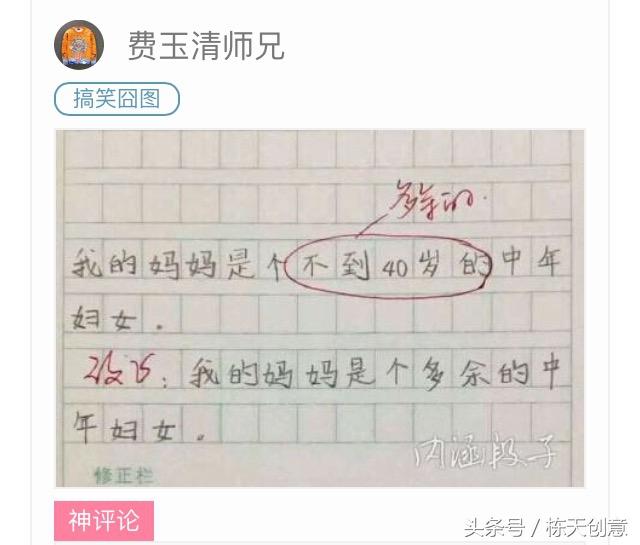 费玉清师兄
搞笑囧图
多余的.
我的妈妈是个不到40岁的中年
妇女。
改正：我的妈妈是个多余的中
年妇女。
内涵段子
修正栏
神评论
头条号 / 栋天创意